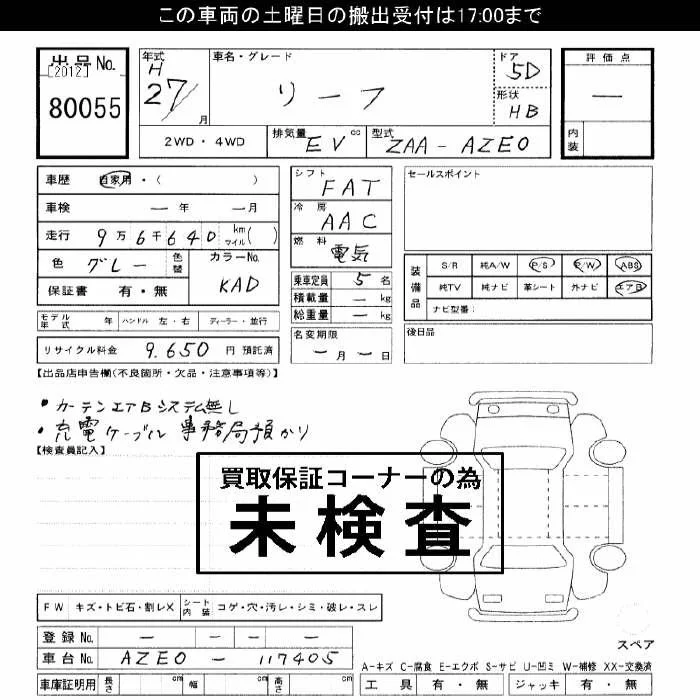 この車両の土曜日の搬出受付は17:00まで
出品No.
[2012]
80055
年式
H
27/
月
車名・グレード
リーフ
ドア
5D
形状
HB
評価点
—
内装
2WD・4WD
排気量
EV cc
型式
ZAA-AZE0
車歴 自家用・( )
車検 — 年 — 月
走行 9万6千640 km マイル( )
色 グレー 色替
カラーNo.
KAD
保証書 有・無
シフト
FAT
冷房
AAC
燃料
電気
乗車定員 5 名
積載量 — kg
総重量 — kg
セールスポイント
装備品
S/R 純A/W P/S P/W ABS
純TV 純ナビ 革シート 外ナビ エアB
ナビ型番:
モデル年式 年 ハンドル 左・右 ディーラー・並行
リサイクル料金 9,650 円 預託済
名変期限
— 月 — 日
後日品
【出品店申告欄(不良箇所・欠品・注意事項等)】
・カーテンエアBシステム無し
・充電ケーブル 事務局預かり
【検査員記入】
買取保証コーナーの為
未検査
FW キズ・トビ石・割レX シート内装 コゲ・穴・汚レ・シミ・破レ・スレ
登録No. — — — —
車台No. AZE0 - 117405
車庫証明用 長さ cm 幅 cm 高さ cm
スペア
A-キズ C-腐食 E-エクボ S-サビ U-凹ミ W-補修 XX-交換済
工具 有・無 ジャッキ 有・無